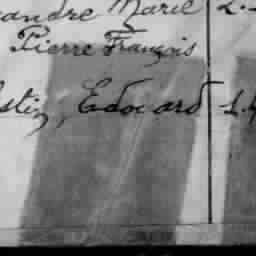 andre Marie 2.
Pierre François
stin, Edouard 1.